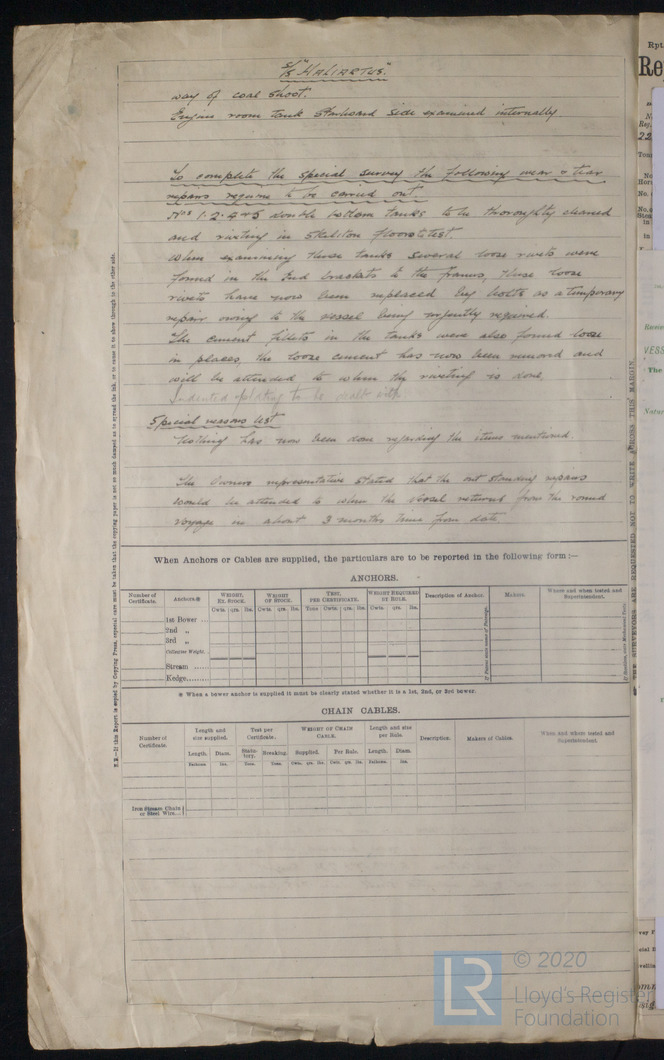 S/S "HALIARTUS".
way of coal shoot.
Engine room tank Starboard side examined internally
To complete the special survey the following wear & tear
repairs require to be carried out.
Nos 1.2.4 & 5 double bottom tanks to be thoroughly cleaned
and riveting in skeleton floors & test.
When examining these tanks several loose rivets were
found in the end brackets to the frames, these loose
rivets have now been replaced by bolts as a temporary
repair owing to the vessel being urgently required.
The cement fillets in the tanks were also found loose
in places, the loose cement has now been removed and
will be attended to when the riveting is done.
Indented plating to be dealt with.
Special reasons list
Nothing has now been done regarding the items mentioned.
The Owners representative stated that the outstanding repairs
would be attended to when the vessel returns from the round
voyage in about 3 months time from date.
When Anchors or Cables are supplied, the particulars are to be reported in the following form:—
ANCHORS.
Number of Certificate. Anchors.* WEIGHT, EX. STOCK. WEIGHT OF STOCK. TEST, PER CERTIFICATE. WEIGHT REQUIRED BY RULE. Description of Anchor. Makers. Where and when tested and Superintendent.
Cwts. qrs. lbs. Cwts. qrs. lbs. Tons Cwts. qrs. lbs. Cwts. qrs. lbs.
1st Bower ...
2nd „
3rd „
Collective Weight.
Stream ......
Kedge.........
* When a bower anchor is supplied it must be clearly stated whether it is a 1st, 2nd, or 3rd bower.
CHAIN CABLES.
Number of Certificate. Length and size supplied. Test per Certificate. WEIGHT OF CHAIN CABLE. Length and size per Rule. Description. Makers of Cables. When and where tested and Superintendent.
Length. Diam. Statutory. Breaking. Supplied. Per Rule. Length. Diam.
Fathoms. Ins. Tons. Tons. Cwts. qrs. lbs. Cwts. qrs. lbs. Fathoms. Ins.
Iron Stream Chain or Steel Wire...
N.B.—If this Report is copied by Copying Press, especial care must be taken that the copying paper is not so much damped as to spread the ink, or to cause it to show through to the other side.
THE SURVEYORS ARE REQUESTED NOT TO WRITE ACROSS THIS MARGIN.
Rpt
Re
VESS
The
LR
© 2020
Lloyd's Register
Foundation